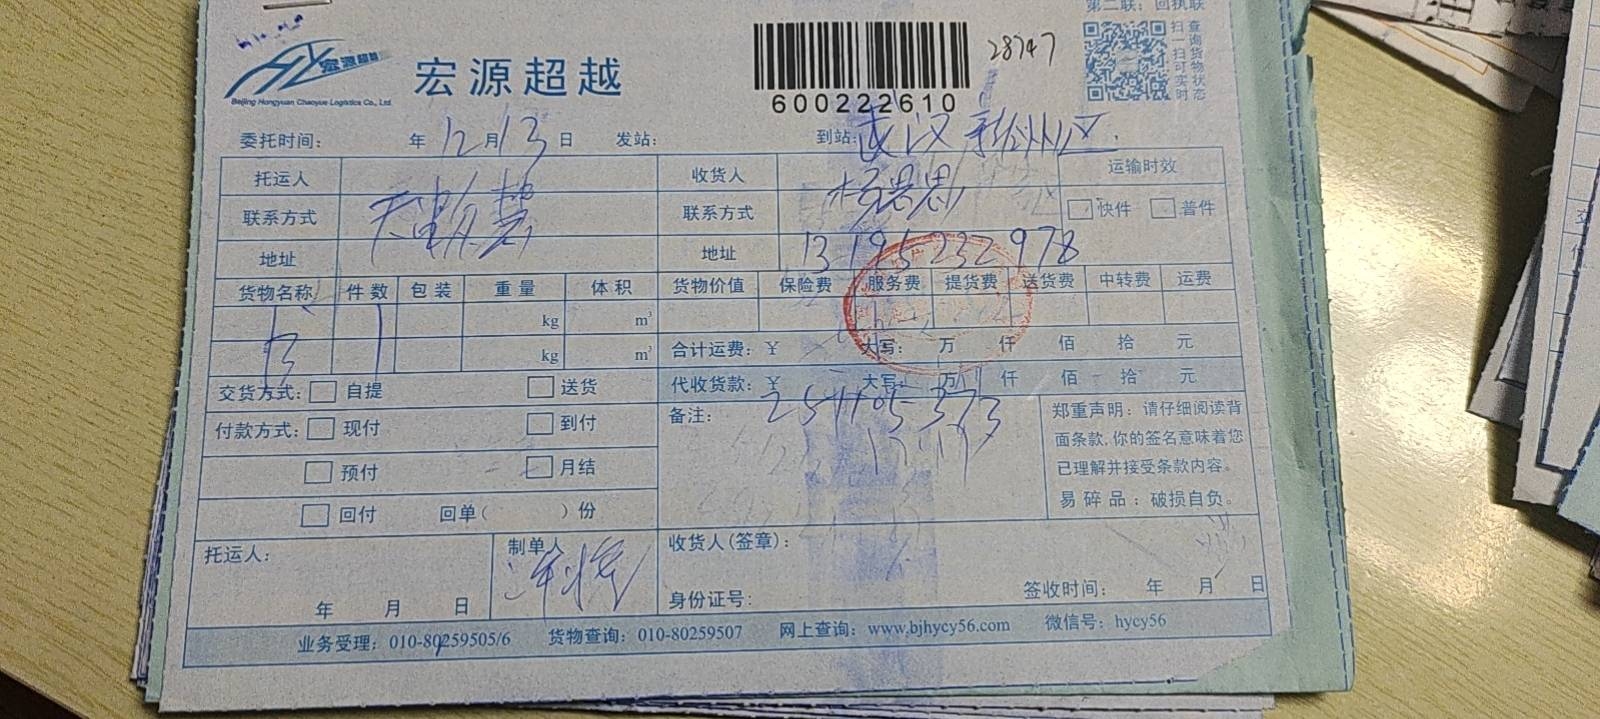 第二联：回执联
宏源超越
Beijing Hongyuan Chaoyue Logistics Co., Ltd
宏源超越
600222610
28747
查询货物状态
扫一扫可实时
委托时间： 年 12 月 13 日 发站： 到站： 武汉新洲区
托运人 收货人 运输时效
联系方式 联系方式 快件 普件
地址 地址 13195232978
货物名称 件数 包装 重量 体积 货物价值 保险费 服务费 提货费 送货费 中转费 运费
kg m³
kg m³ 合计运费：¥ 大写： 万 仟 佰 拾 元
交货方式： 自提 送货 代收货款：¥ 大写： 万 仟 佰 拾 元
付款方式： 现付 到付 备注：
预付 月结
回付 回单（ ）份
郑重声明：请仔细阅读背
面条款，你的签名意味着您
已理解并接受条款内容。
易碎品：破损自负。
托运人： 制单人 收货人(签章)：
年 月 日 身份证号： 签收时间： 年 月 日
业务受理：010-80259505/6 货物查询：010-80259507 网上查询：www.bjhycy56.com 微信号：hycy56